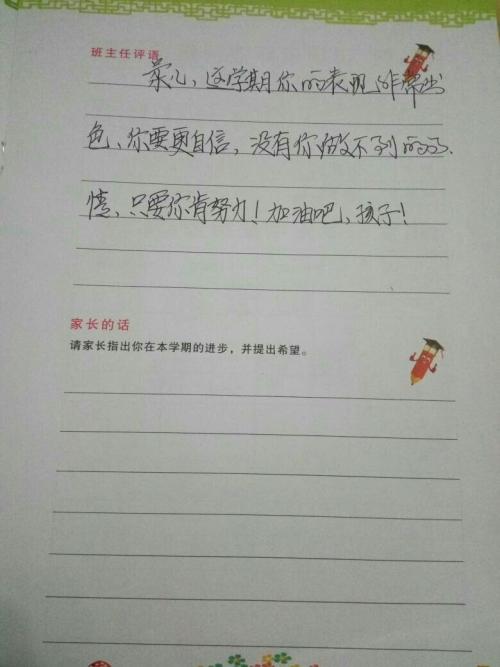 班主任评语
心,这学期你的表现非常出
色、你要更自信,没有你做不到的事
情、只要你肯努力!加油吧、孩子!
家长的话
请家长指出你在本学期的进步,并提出希望。